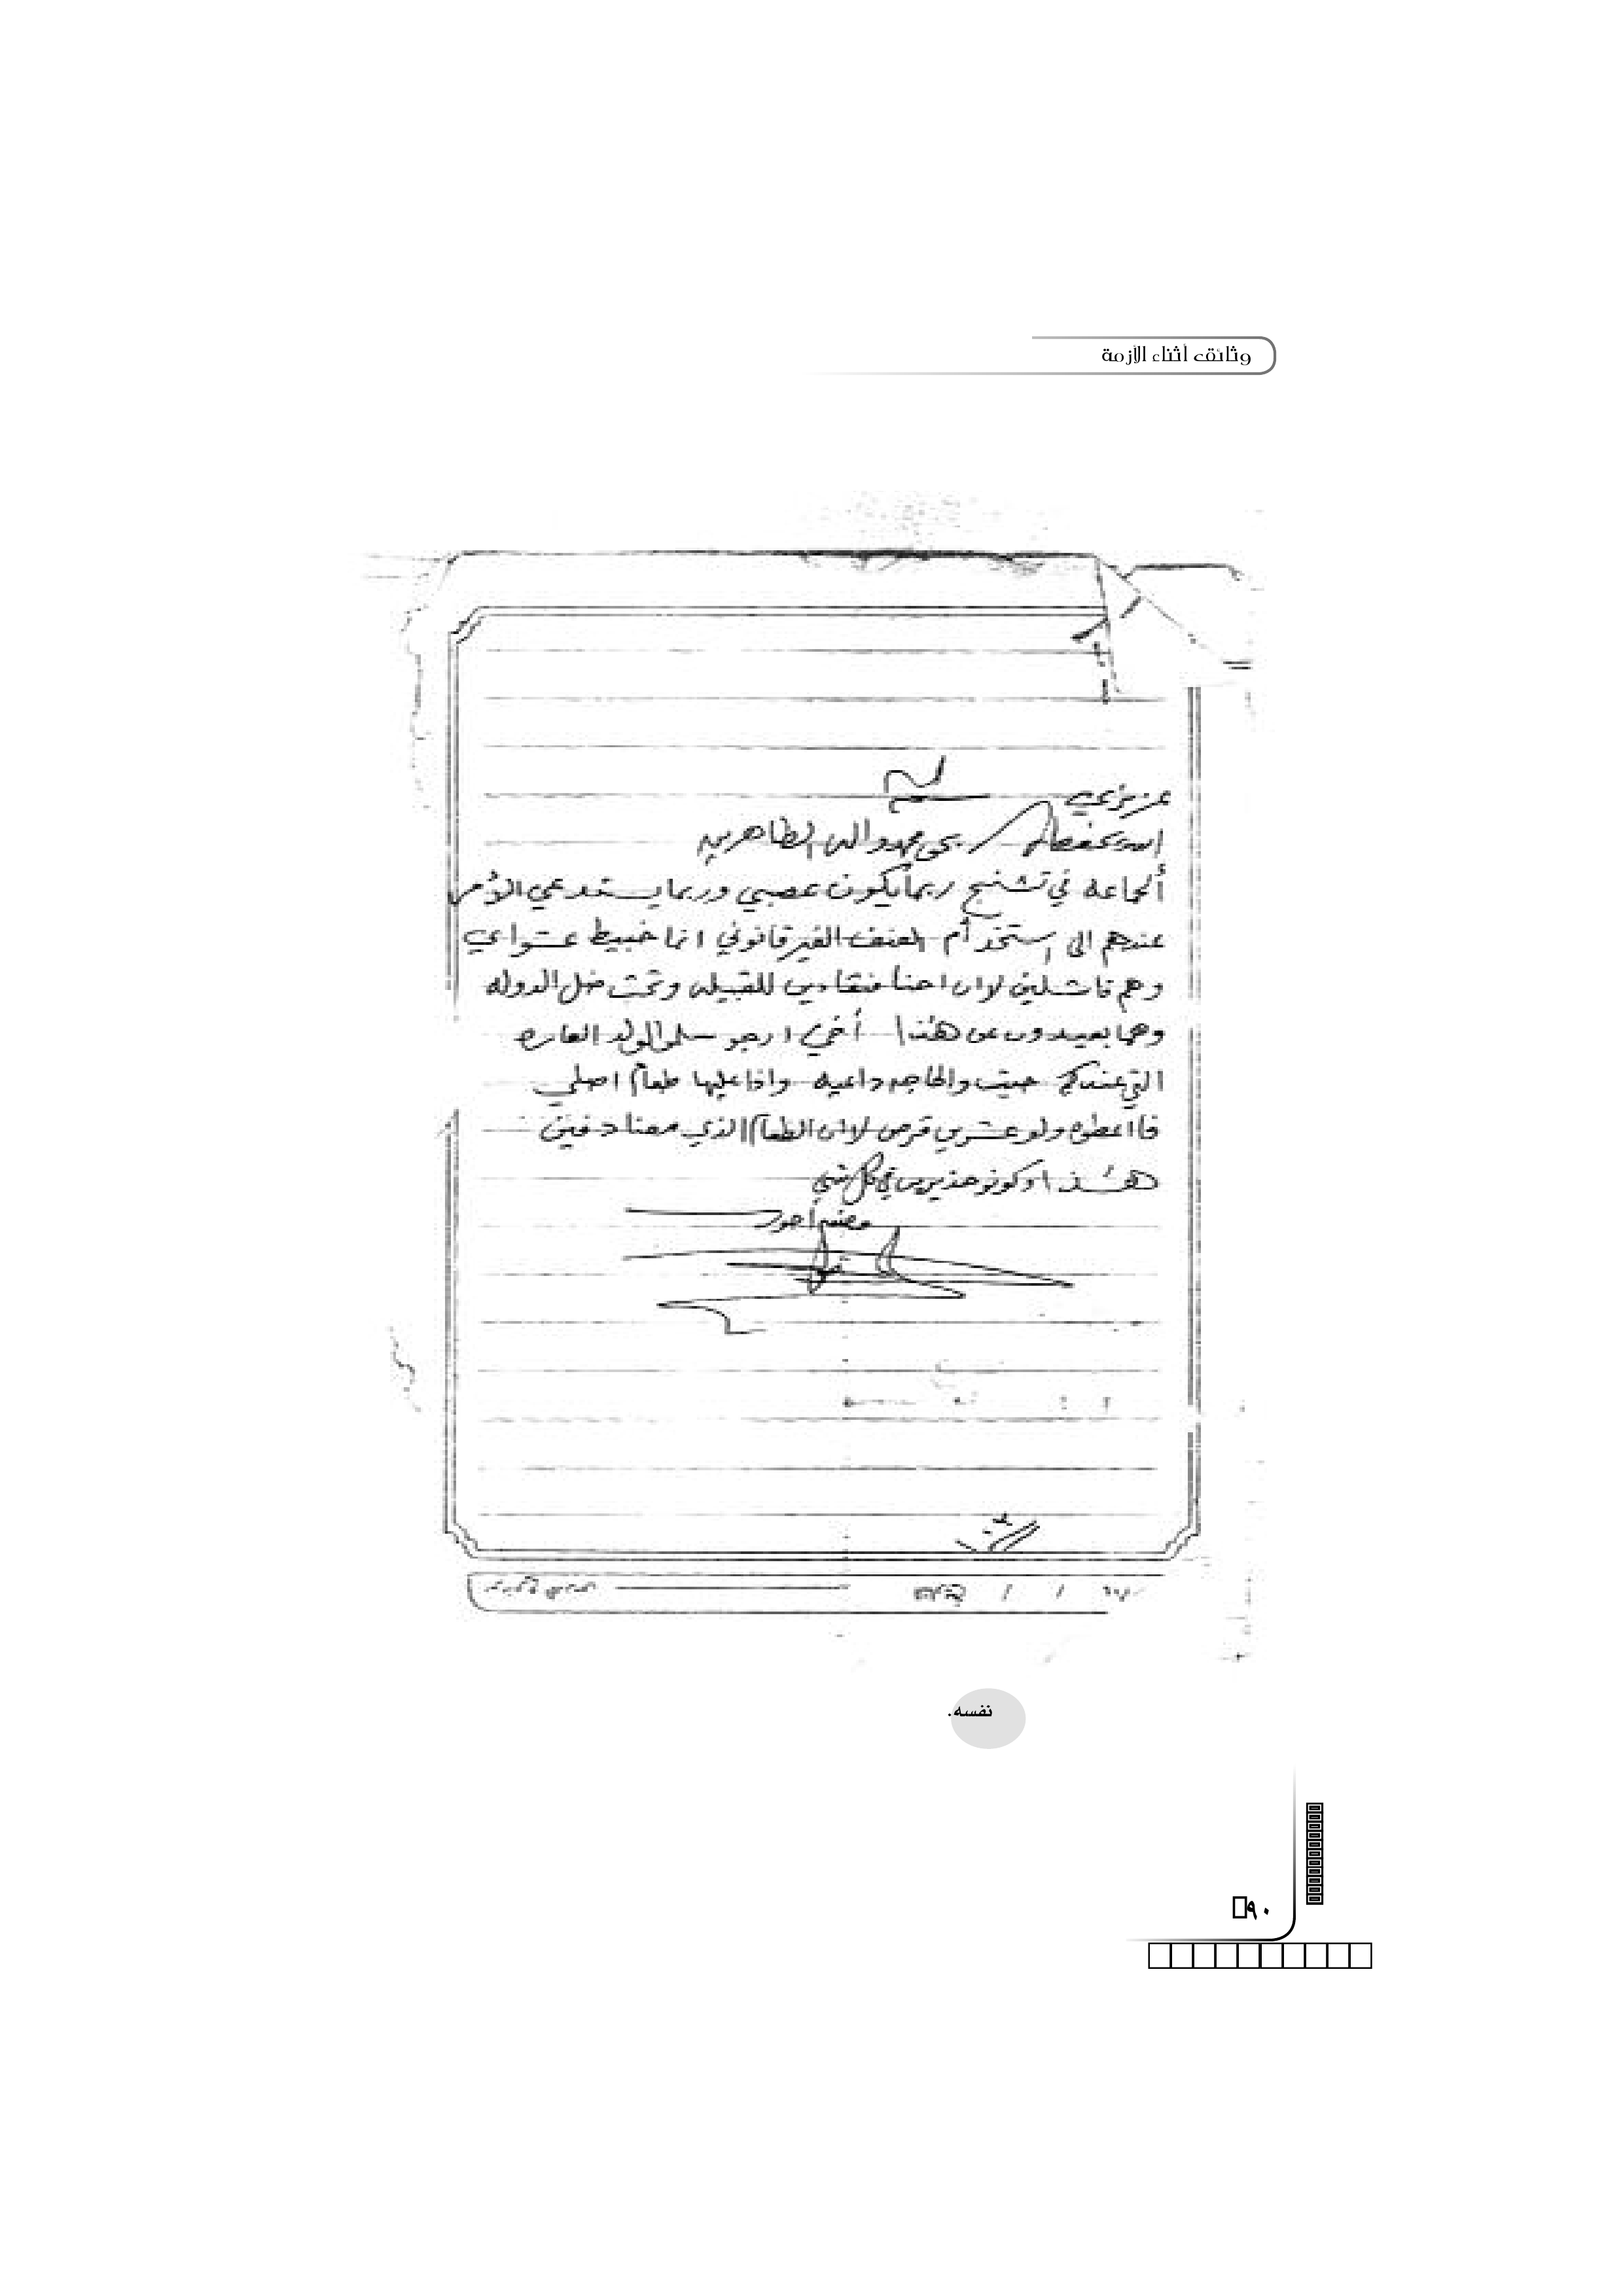 وثائق أثناء الأزمة
عزيزي
الله يحفظكم بحق محمد وآله الطاهرين
ألجماعه في تشنج ربما يكون عصبي وربما يستدعي الأمر
عندهم الى إستخدأم العنف الغير قانوني انما خبيط عشواي
وهم فاشلين لان احنا منقادين للقبيله وتحت ضل الدوله
وهما بعيدون عن هذا أخي ارجو الولد العاره
التي عندكم حيث والحاجه داعيه واذا عليها طعام اصلي
فااعطوه ولو عشرين قرص لان الطعام الذي معنا دفين
هذا وكونو حذيرين في كل شي
نفسه.
٩٠